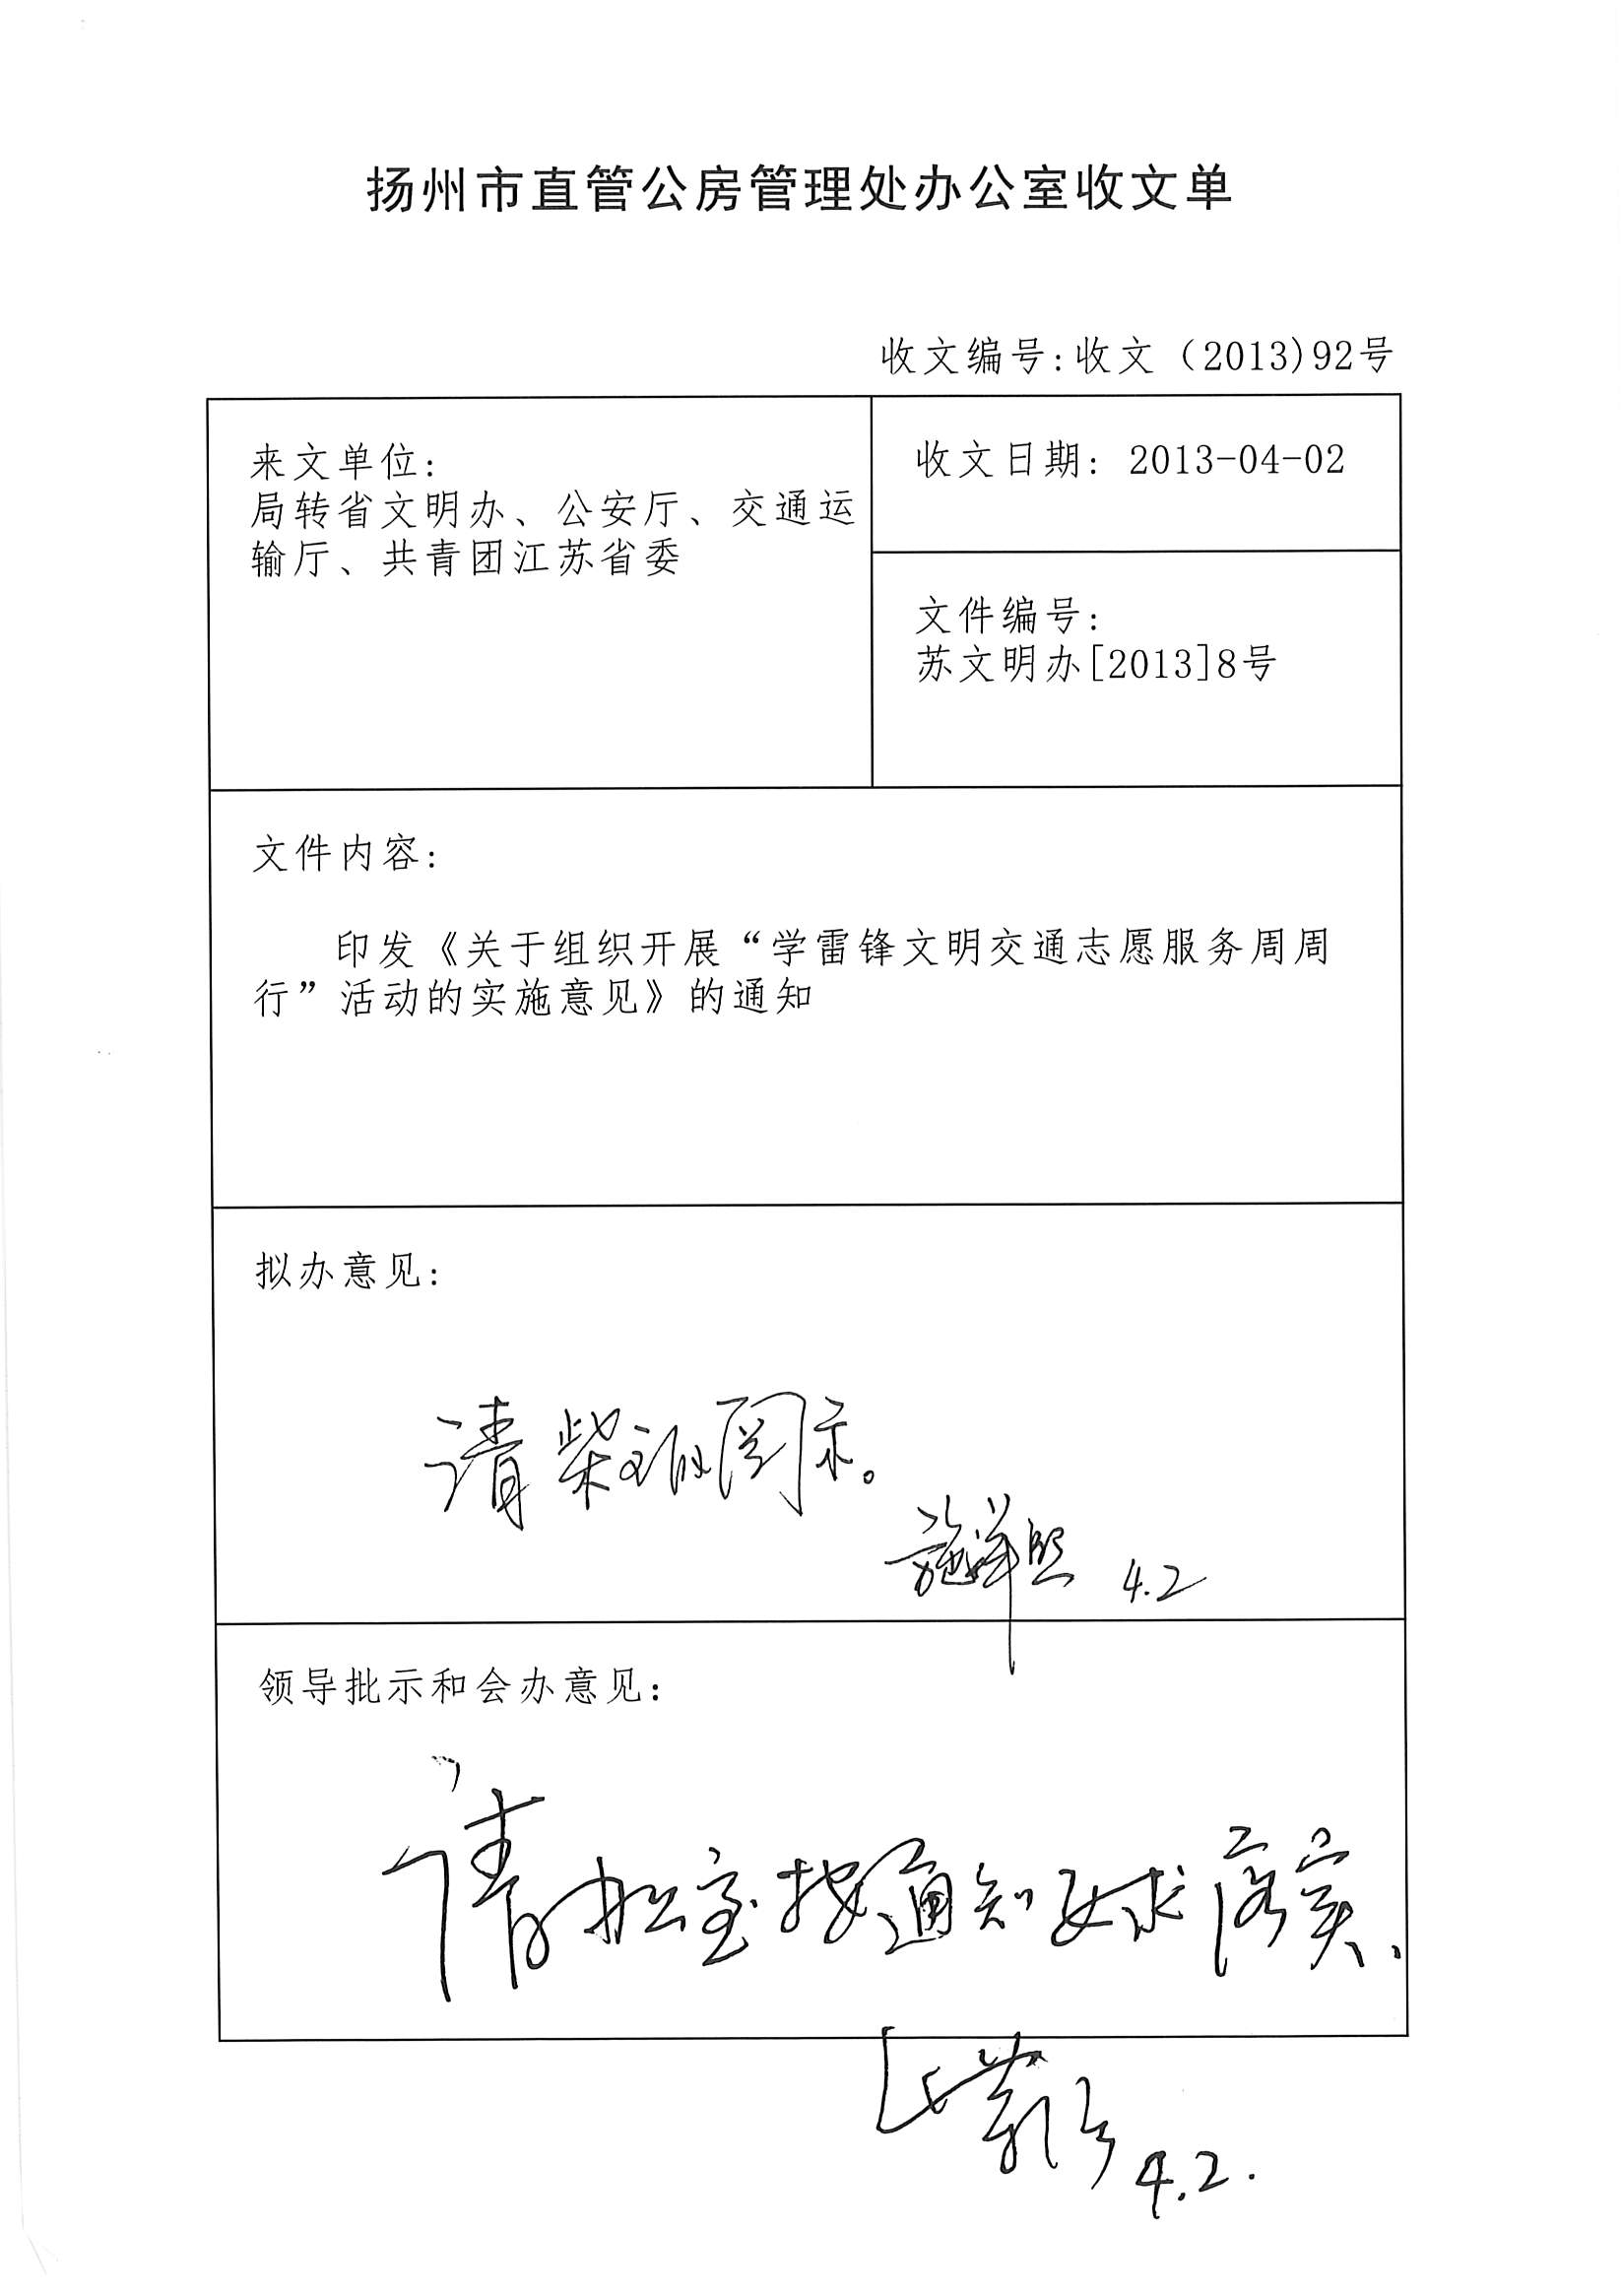 扬州市直管公房管理处办公室收文单
收文编号:收文（2013)92号
来文单位:
局转省文明办、公安厅、交通运
输厅、共青团江苏省委
收文日期: 2013-04-02
文件编号:
苏文明办[2013]8号
文件内容:
印发《关于组织开展“学雷锋文明交通志愿服务周周
行”活动的实施意见》的通知
拟办意见:
请柴主任阅示。
4.2
领导批示和会办意见:
请办公室按通知要求落实.
4.2.